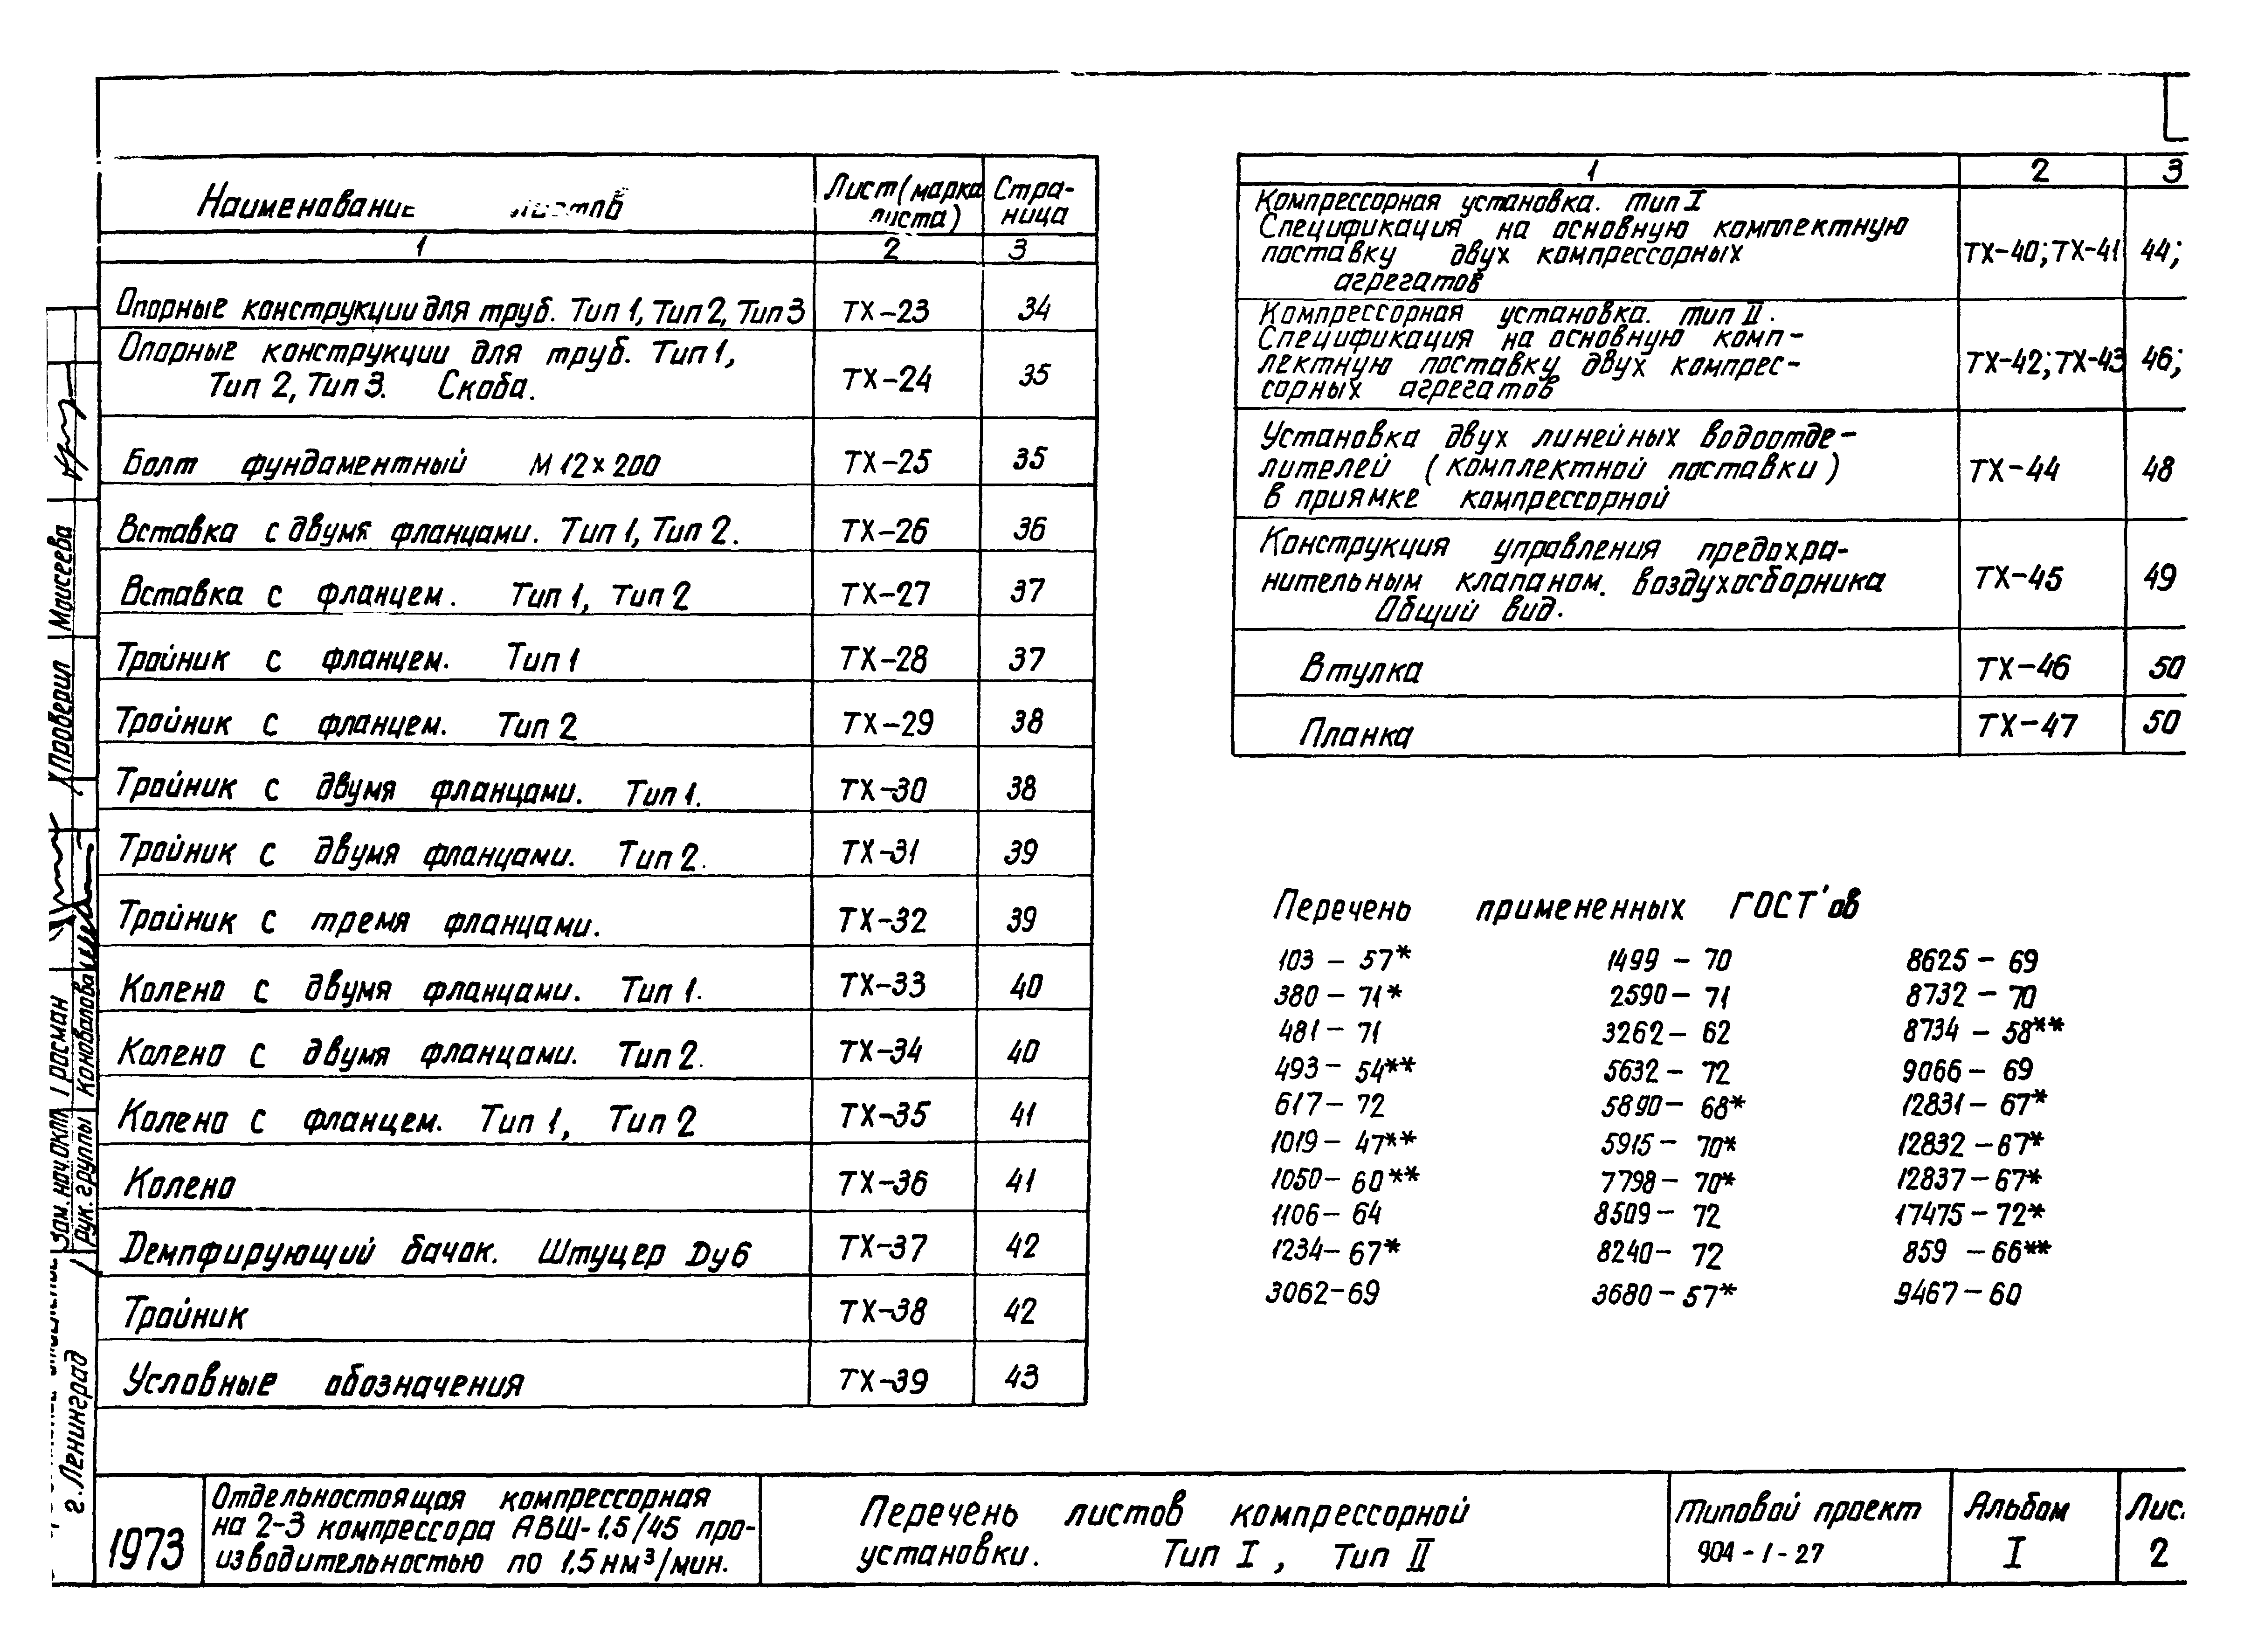 Наименование листов
Лист (марка листа)
Стра-
ница
1 2 3
Опорные конструкции для труб. Тип 1, Тип 2, Тип 3 ТХ-23 34
Опорные конструкции для труб. Тип 1,
Тип 2, Тип 3. Скоба. ТХ-24 35
Болт фундаментный М 12×200 ТХ-25 35
Вставка с двумя фланцами. Тип 1, Тип 2. ТХ-26 36
Вставка с фланцем. Тип 1, Тип 2 ТХ-27 37
Тройник с фланцем. Тип 1 ТХ-28 37
Тройник с фланцем. Тип 2 ТХ-29 38
Тройник с двумя фланцами. Тип 1. ТХ-30 38
Тройник с двумя фланцами. Тип 2. ТХ-31 39
Тройник с тремя фланцами. ТХ-32 39
Колено с двумя фланцами. Тип 1. ТХ-33 40
Колено с двумя фланцами. Тип 2. ТХ-34 40
Колено с фланцем. Тип 1, Тип 2 ТХ-35 41
Колено ТХ-36 41
Демпфирующий бачок. Штуцер Ду6 ТХ-37 42
Тройник ТХ-38 42
Условные обозначения ТХ-39 43
1 2 3
Компрессорная установка. тип I
Спецификация на основную комплектную
поставку двух компрессорных
агрегатов ТХ-40; ТХ-41 44;
Компрессорная установка. тип II.
Спецификация на основную комп-
лектную поставку двух компрес-
сорных агрегатов ТХ-42; ТХ-43 46;
Установка двух линейных водоотде-
лителей (комплектной поставки)
в приямке компрессорной ТХ-44 48
Конструкция управления предохра-
нительным клапаном. воздухосборника
Общий вид. ТХ-45 49
Втулка ТХ-46 50
Планка ТХ-47 50
Перечень примененных ГОСТ'ов
103 - 57* 1499 - 70 8625 - 69
380 - 71* 2590 - 71 8732 - 70
481 - 71 3262 - 62 8734 - 58**
493 - 54** 5632 - 72 9066 - 69
617 - 72 5890 - 68* 12831 - 67*
1019 - 47** 5915 - 70* 12832 - 67*
1050 - 60** 7798 - 70* 12837 - 67*
1106 - 64 8509 - 72 17475 - 72*
1234 - 67* 8240 - 72 859 - 66**
3062 - 69 3680 - 57* 9467 - 60
Проверил Моисеева
Зам. нач. ОКТП
Рук. группы Коновалова
г. Ленинград
1973
Отдельностоящая компрессорная
на 2-3 компрессора АВШ-1.5/45 про-
изводительностью по 1.5 нм³/мин.
Перечень листов компрессорной
установки. Тип I, Тип II
Типовой проект
904-1-27
Альбом
I
Лис.
2